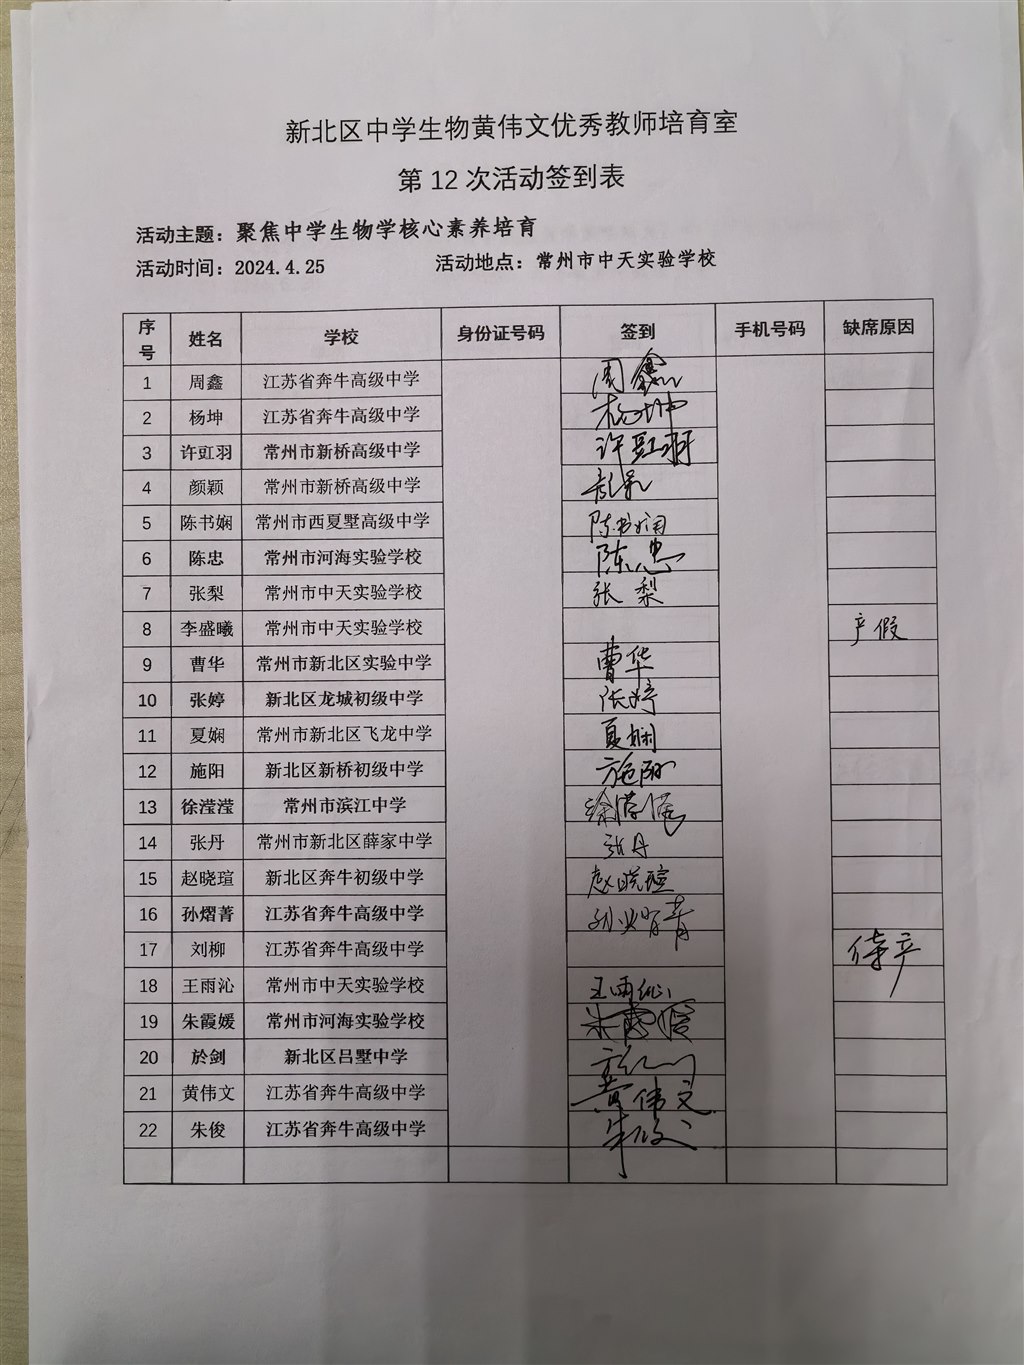 新北区中学生物黄伟文优秀教师培育室
第 12 次活动签到表
活动主题：聚焦中学生物学核心素养培育
活动时间：2024.4.25 活动地点：常州市中天实验学校
序号 姓名 学校 身份证号码 签到 手机号码 缺席原因
1 周鑫 江苏省奔牛高级中学 周鑫
2 杨坤 江苏省奔牛高级中学 杨坤
3 许豇羽 常州市新桥高级中学 许豇羽
4 颜颖 常州市新桥高级中学 颜颖
5 陈书娴 常州市西夏墅高级中学 陈书娴
6 陈忠 常州市河海实验学校 陈忠
7 张梨 常州市中天实验学校 张梨
8 李盛曦 常州市中天实验学校 产假
9 曹华 常州市新北区实验中学 曹华
10 张婷 新北区龙城初级中学 张婷
11 夏娴 常州市新北区飞龙中学 夏娴
12 施阳 新北区新桥初级中学 施阳
13 徐滢滢 常州市滨江中学 徐滢滢
14 张丹 常州市新北区薛家中学 张丹
15 赵晓瑄 新北区奔牛初级中学 赵晓瑄
16 孙熠菁 江苏省奔牛高级中学 孙熠菁
17 刘柳 江苏省奔牛高级中学 待产
18 王雨沁 常州市中天实验学校 王雨沁
19 朱霞媛 常州市河海实验学校 朱霞媛
20 於剑 新北区吕墅中学 於剑
21 黄伟文 江苏省奔牛高级中学 黄伟文
22 朱俊 江苏省奔牛高级中学 朱俊